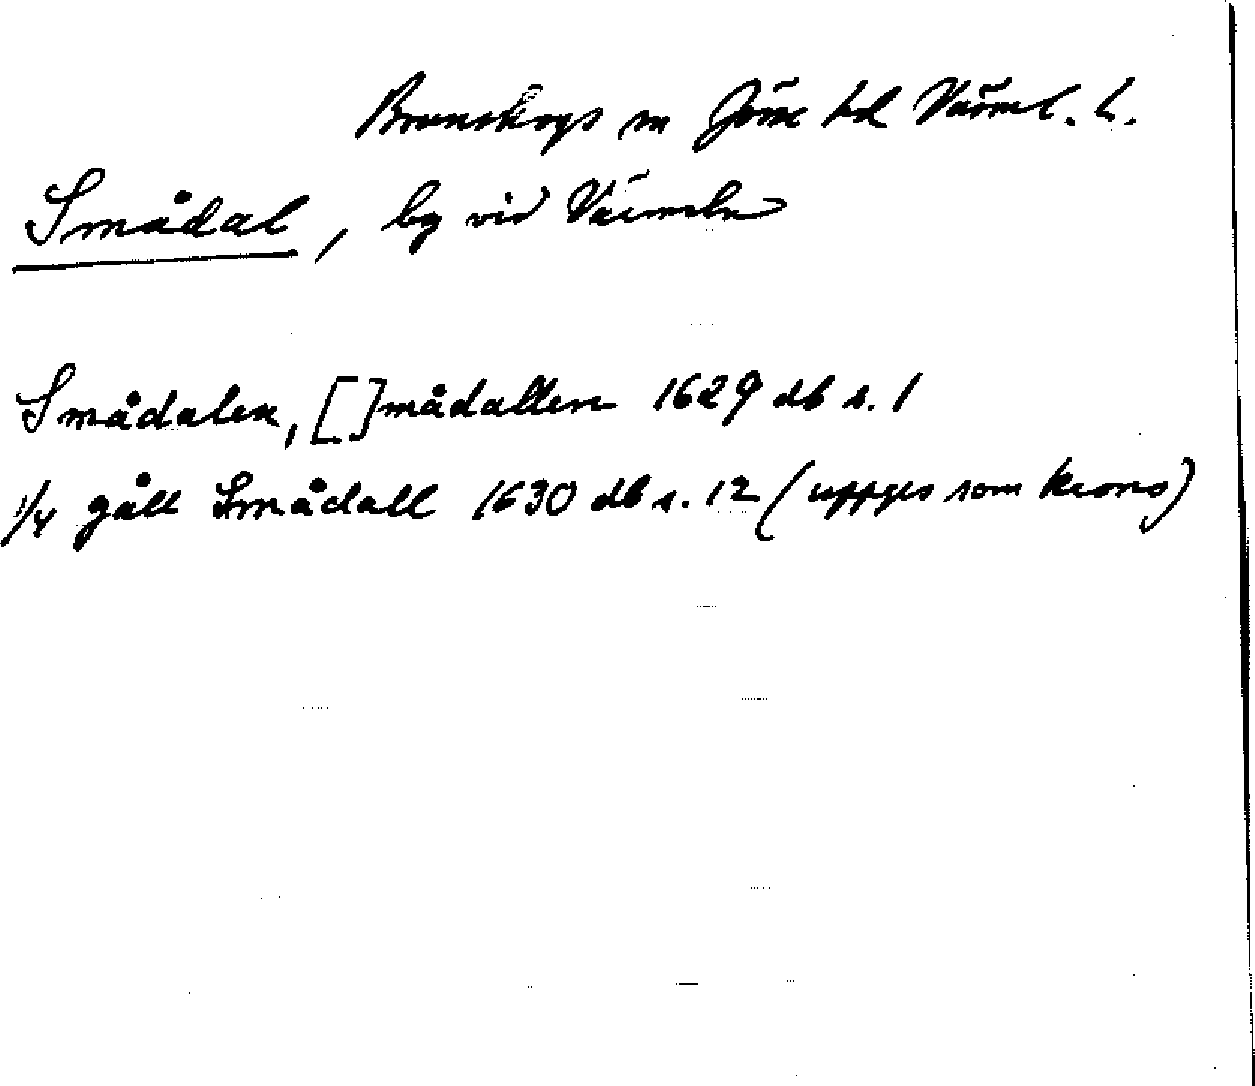 Brunskogs sn Jösse hd Värml. l.
Smådal, by vid Värmeln
Smådalen, [ ]mådallen 1629 db s. 1
1/4 gåll Smådall 1630 db s. 12 (uppges som krono)